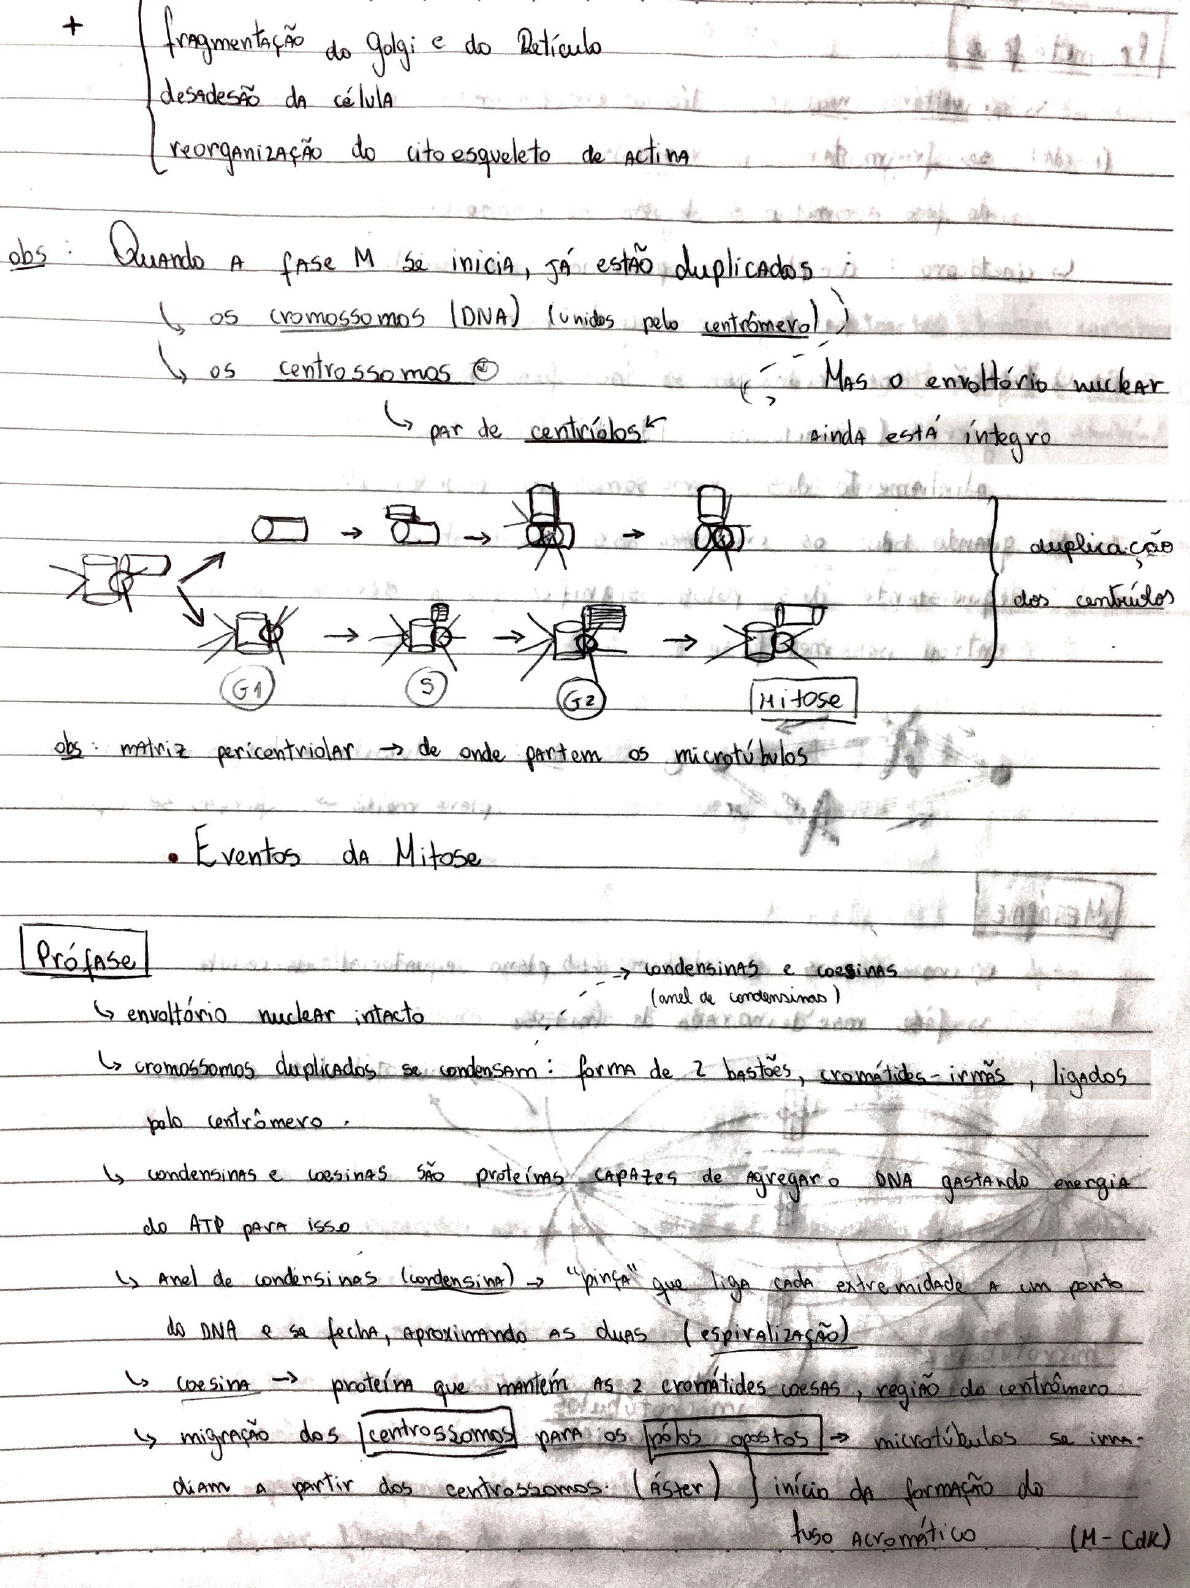 + fragmentação do Golgi e do Retículo
desadesão da célula
reorganização do citoesqueleto de actina
obs: Quando a fase M se inicia, já estão duplicados
↳ os cromossomos (DNA) (unidos pelo centrômero)
↳ os centrossomos ②
Mas o envoltório nuclear
↳ par de centríolos
ainda está íntegro
duplicação
dos centríolos
G1 S G2 Mitose
obs: matriz pericentriolar → de onde partem os microtúbulos
• Eventos da Mitose
Prófase
→ condensinas e coesinas
(anel de condensinas)
↳ envoltório nuclear intacto
↳ cromossomos duplicados se condensam: forma de 2 bastões, cromátides-irmãs, ligados
pelo centrômero.
↳ condensinas e coesinas são proteínas capazes de agregar o DNA gastando energia
do ATP para isso
↳ Anel de condensinas (condensina) → "pinça" que liga cada extremidade a um ponto
do DNA e se fecha, aproximando as duas (espiralização)
↳ coesina → proteína que mantém as 2 cromátides coesas, região do centrômero
↳ migração dos centrossomos para os pólos opostos → microtúbulos se irra-
diam a partir dos centrossomos. (Áster) } início da formação do
fuso acromático (M-Cdk)